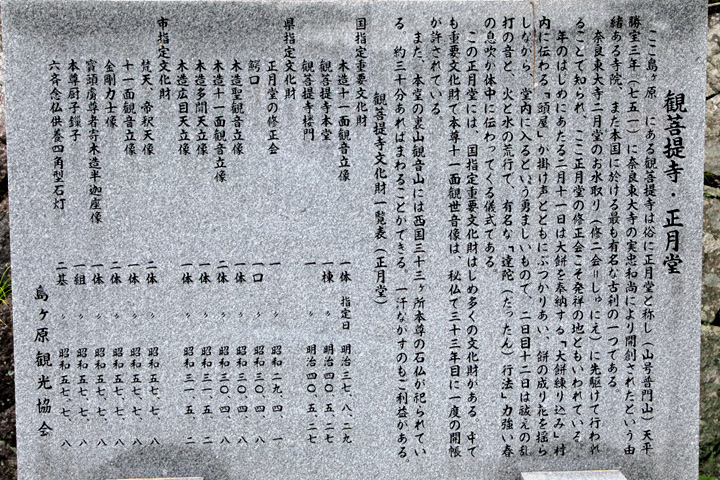 観菩提寺・正月堂
ここ島ヶ原 にある観菩提寺は俗に正月堂と称し(山号普門山)天平
勝宝三年(七五一)に奈良東大寺の実忠和尚により開創されたという由
緒ある寺院、また本国に於ける最も有名な古刹の一つである。
奈良東大寺二月堂のお水取り(修二会=しゅにえ)に先駆けて行われ
ることで知られ、ここ正月堂の修正会こそ発祥の地ともいわれている。
年のはじめにあたる二月十一日は大餅を奉納する「大餅練り込み」村
内に伝わる「頭屋」が掛け声とともにぶつかりあい、餅の成り花を揺ら
しながら、堂内に入るという勇ましいもので、二日目十二日は祓えの乱
打の音と、火と水の荒行で、有名な「達陀(だったん)行法」力強い春
の息吹が体中に伝わってくる儀式である。
この正月堂には、国指定重要文化財はじめ多くの文化財がある。中で
も重要文化財で本尊十一面観世音像は、秘仏で三十三年目に一度の開帳
が許されている。
また、本堂の裏山観音山には西国三十三ヶ所本尊の石仏が祀られてい
る。約三十分あればまわることができる。一汗ながすのもご利益がある。
観菩提寺文化財一覧表(正月堂)
国指定重要文化財
木造十一面観音立像 一体 指定日 明治三七、八、二九
観菩提寺本堂 一棟 〃 明治四〇、五、二七
観菩提寺楼門 一 〃 明治四〇、五、二七
県指定文化財
正月堂の修正会 一 〃 昭和二九、四、一
鰐口 一口 〃 昭和三〇、四、八
木造聖観音立像 一体 〃 昭和三〇、四、八
木造十一面観音立像 二体 〃 昭和三〇、四、八
木造多聞天立像 一体 〃 昭和三一、五、二
木造広目天立像 一体 〃 昭和三一、五、二
市指定文化財
梵天、帝釈天像 二体 〃 昭和五七、七、八
十一面観音立像 一体 〃 昭和五七、七、八
金剛力士像 二体 〃 昭和五七、七、八
賓頭盧尊者寄木造半跏座像 一体 〃 昭和五七、七、八
本尊厨子鑰子 一組 〃 昭和五七、七、八
六斉念仏供養四角型石灯 二基 〃 昭和五七、七、八
島ヶ原観光協会